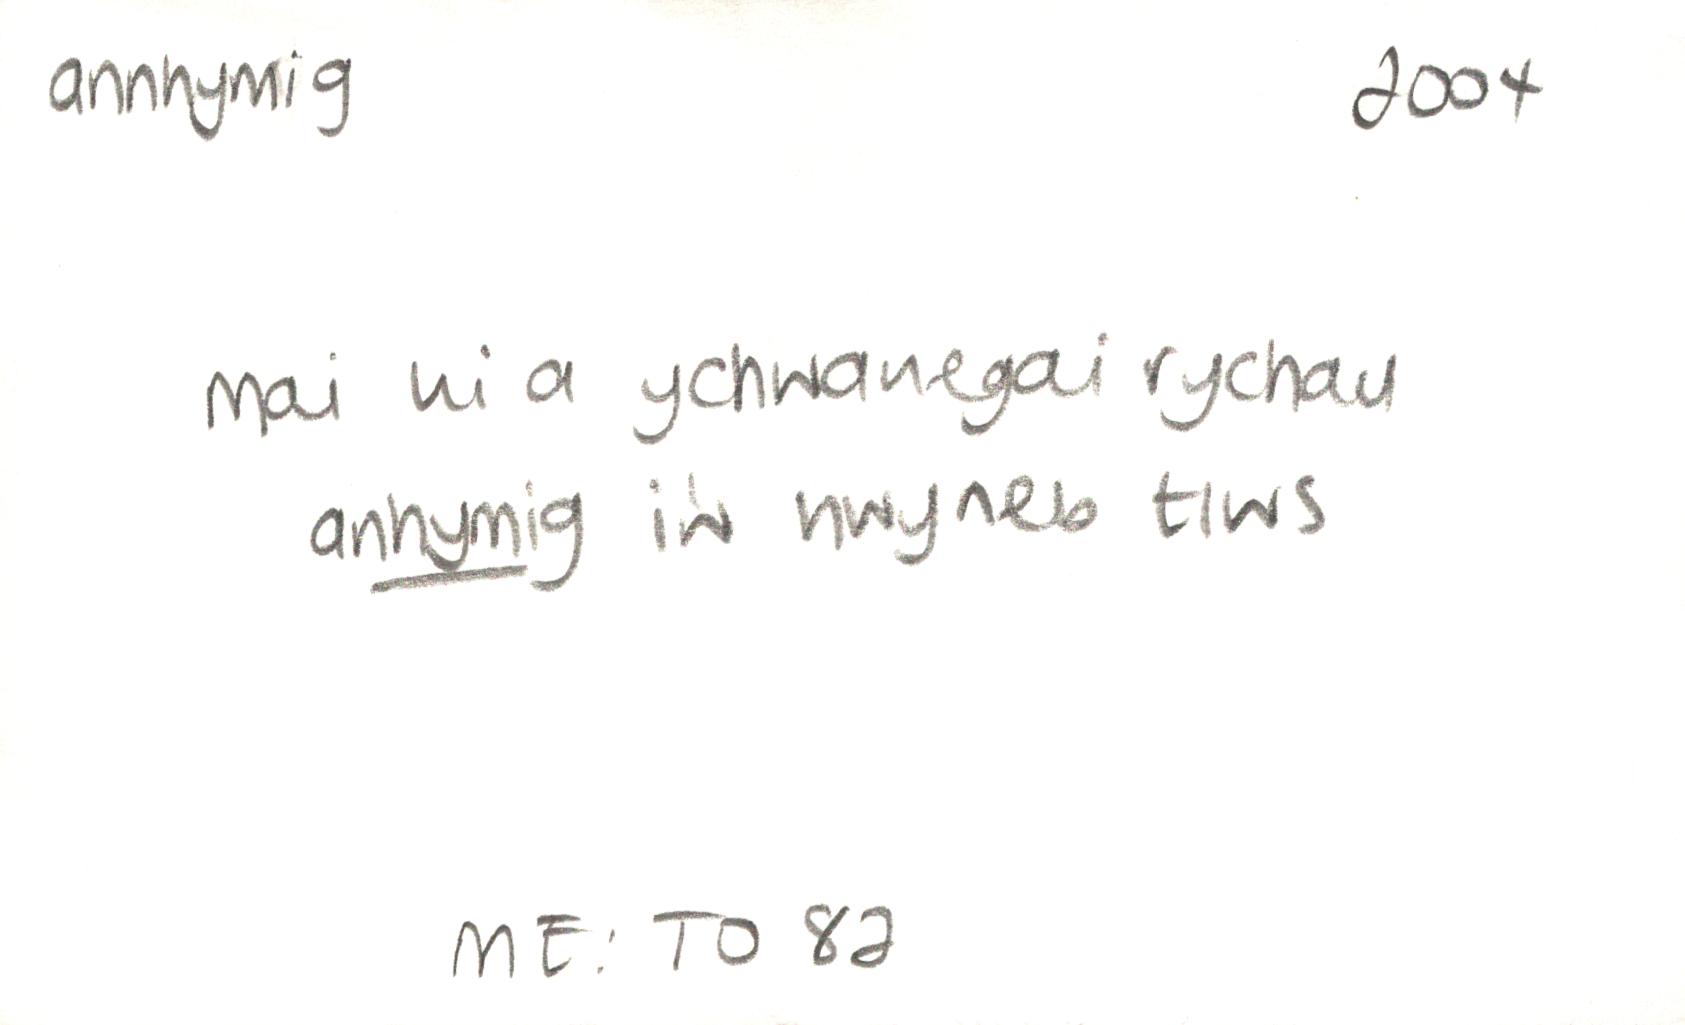 annhymig 2004
mai hi a ychwanegai rychau
anhymig i'w hwyneb tlws
ME: TO 82